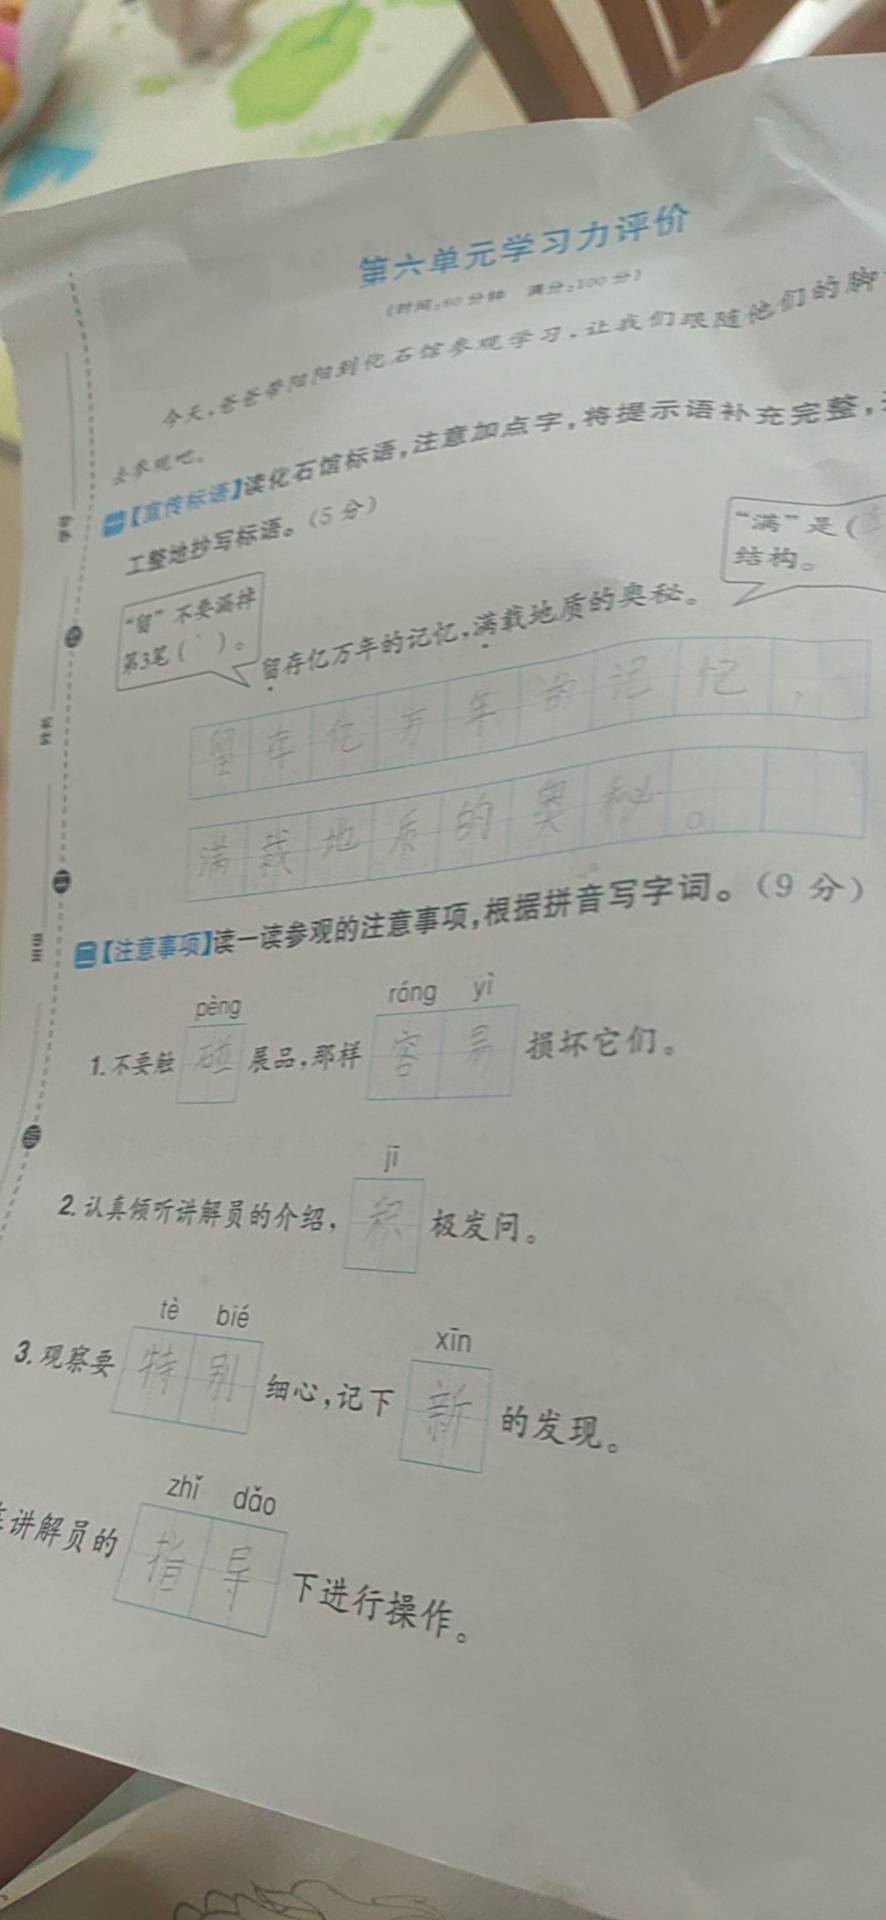 第六单元学习力评价
(时间:60分钟 满分:100分)
今天,爸爸带阳阳到化石馆参观学习,让我们跟随他们的脚
去参观吧。
一【宣传标语】读化石馆标语,注意加点字,将提示语补充完整,
工整地抄写标语。(5分)
“满”是(
结构。
“留”不要漏掉
第3笔(丶)。
留存亿万年的记忆,满载地质的奥秘。
留存亿万年的记忆,
满载地质的奥秘。
二【注意事项】读一读参观的注意事项,根据拼音写字词。(9分)
pèng róng yì
1.不要触碰展品,那样容易损坏它们。
jī
2.认真倾听讲解员的介绍,积极发问。
tè bié xīn
3.观察要特别细心,记下新的发现。
zhǐ dǎo
讲解员的指导下进行操作。
学号
姓名
班级